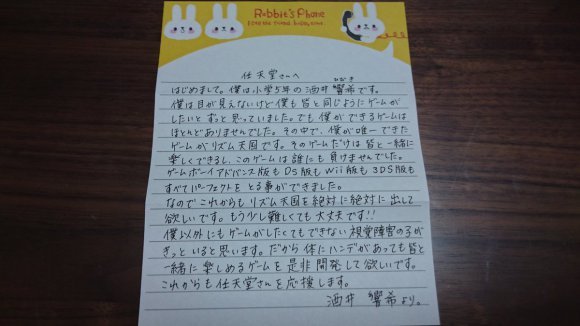 Rabbit's Phone
任天堂さんへ
ひびき
はじめまして。僕は小学5年の酒井 響希です。
僕は目が見えないけど僕も皆と同じようにゲームが
したいとずっと思っていました。でも僕ができるゲームは
ほとんどありませんでした。その中で、僕が唯一できた
ゲームがリズム天国です。そのゲームだけは皆と一緒に
楽しくできるし、このゲームは誰にも負けませんでした。
ゲームボーイアドバンス版もDS版もWii版も3DS版も
すべてパーフェクトをとる事ができました。
なのでこれからもリズム天国を絶対に絶対に出して
欲しいです。もう少し難しくても大丈夫です!!
僕以外にもゲームがしたくてもできない視覚障害の子が
きっといると思います。だから体にハンデがあっても皆と
一緒に楽しめるゲームを是非開発して欲しいです。
これからも任天堂さんを応援します。
酒井 響希より。